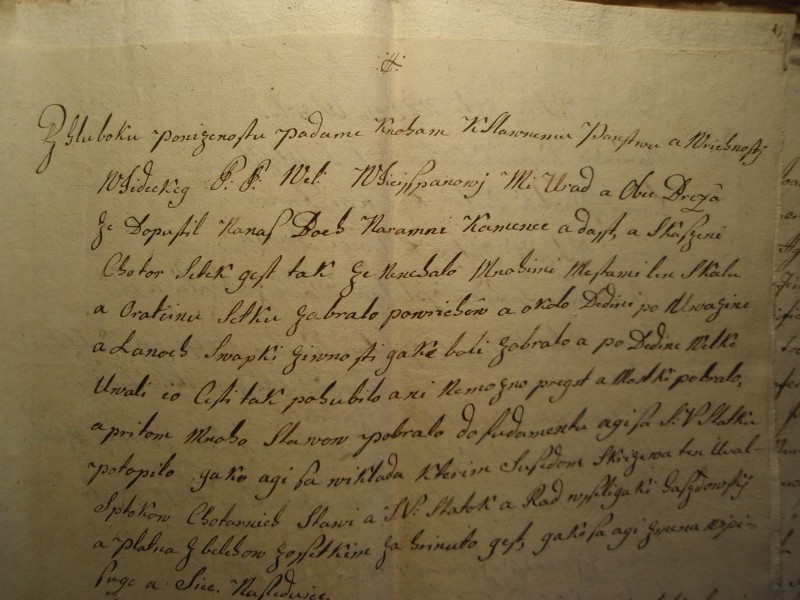 Z Hluboku ponizenostu padame Knoham K Slawnemu Panstwu a Wrichnosti
P: P: Wel: Mi Urad a Obec
Ze Dopustil Nanas Boch Naramni Kamenec a dasst, a Skaszeni
Chotor Setek gest tak ze Nenehalo Mnohimi Mestami len Skalu
a Oračinu Setku zabralo powrichów a okolo Dedini po Uwazine
a Lanoch Swapki ziwnosti gake boli zobralo a po Dedine Welke
Uwali čo Cesti tak pohubilo ani Nemožno pregst a Mostki pobralo,
a pritom Mnoho Stawow pobralo do fudamentu agi sa S: V Statku
potopilo gako agi sa wiklada Kterim Susedom Skrizewa ten Uwal-
Sptokow Chotarnich Stawi a S V: Statok a Rad wsseligaki Gazdowski
a platna z belchow zossetkim zahrinuto gest, gako sa agi zwuna wipi-
suge a Sice. Nasleduice